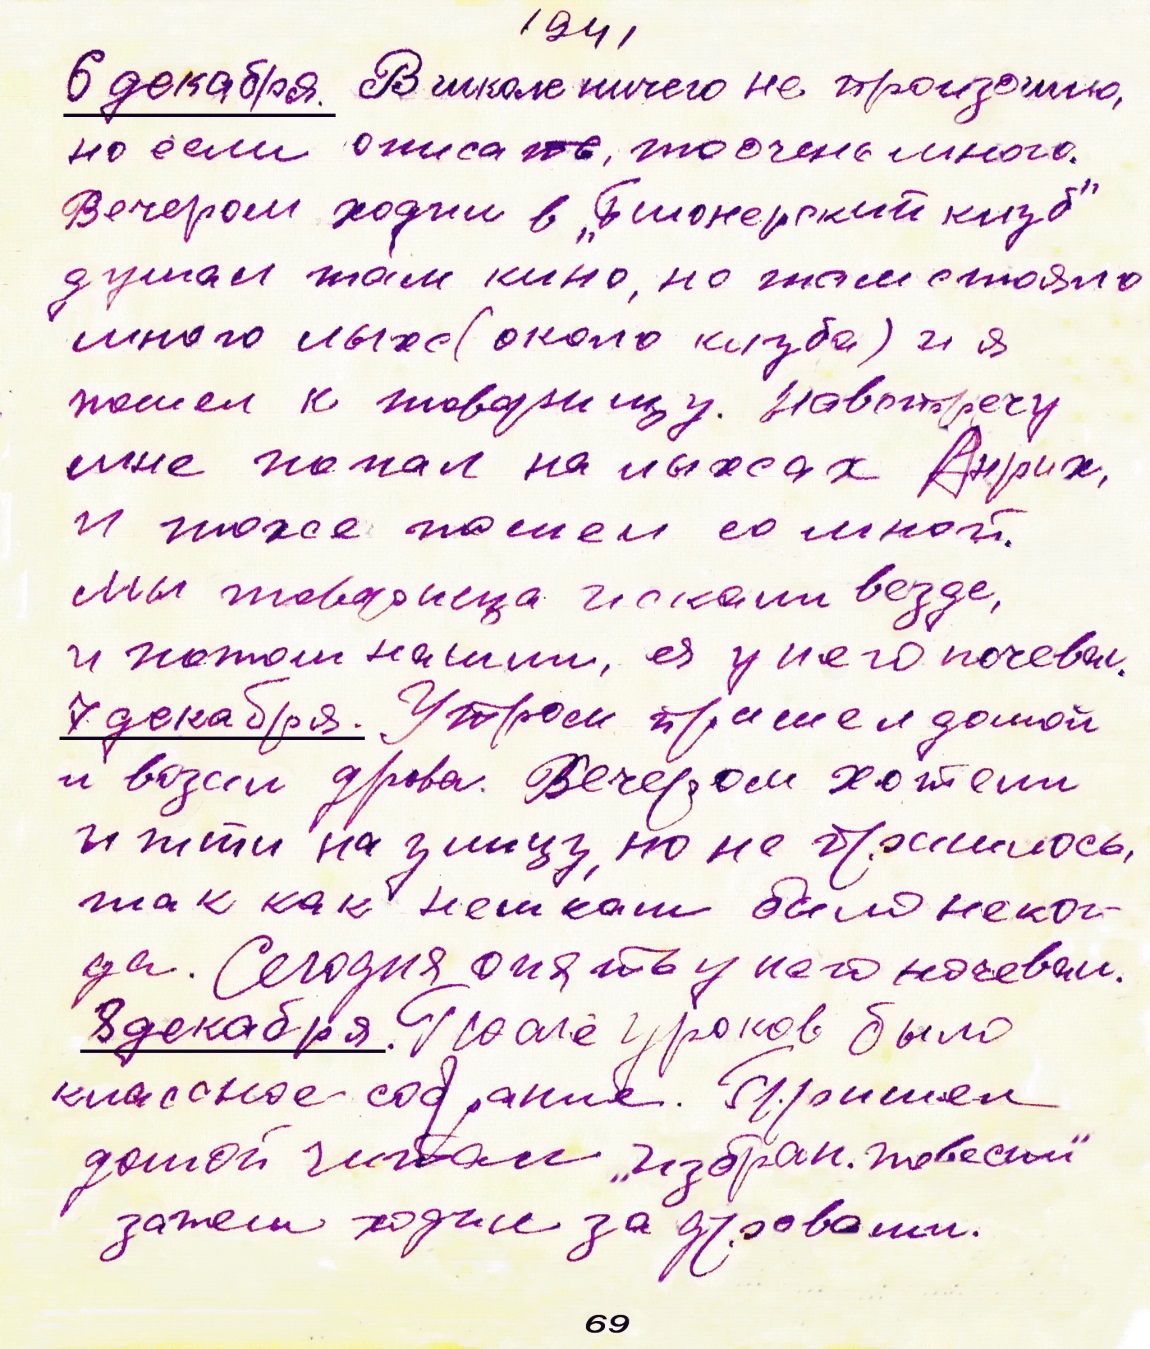 1941
6 декабря. В школе ничего не произошло,
но если описать, то очень много.
Вечером ходил в „Пионерский клуб"
думал там кино, но там стояло
много лыж (около клуба) и я
пошел к товарищу. Навстречу
мне попал на лыжах Анрих,
и тоже пошел со мной.
Мы товарища искали везде,
и потом нашли, и я у него ночевал.
7 декабря. Утром пришел домой
и возил дрова. Вечером хотели
идти на улицу, но не пришлось,
так как нам было неког-
да. Сегодня опять у него ночевал.
8 декабря. После уроков было
классное собрание. Пришел
домой читал „избран. повести"
затем ходил за дровами.
69